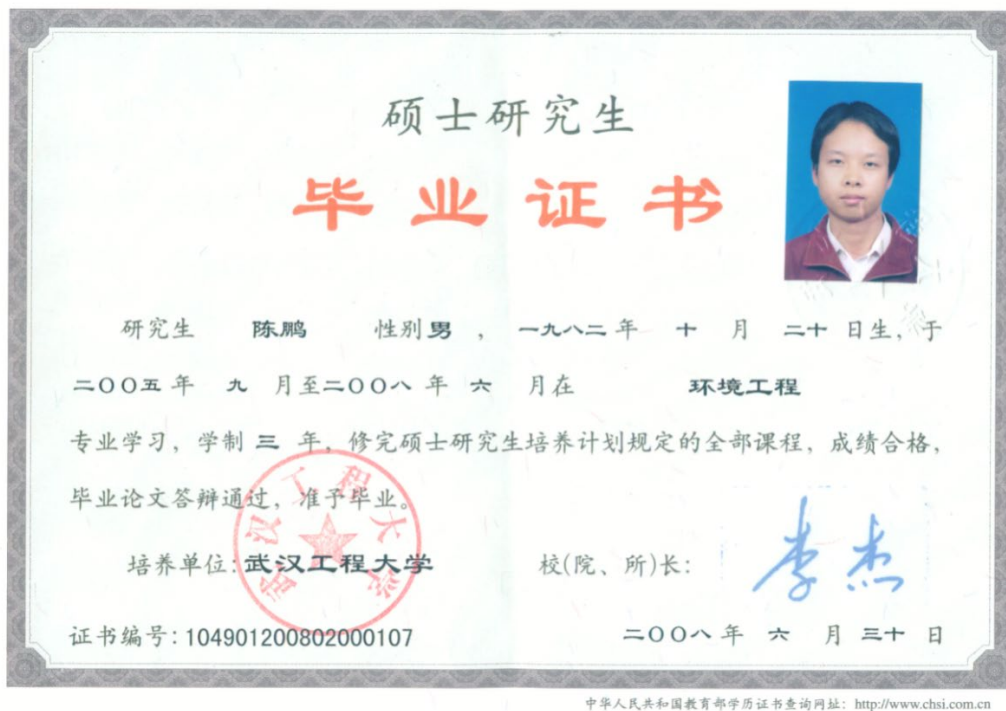 硕士研究生
毕业证书
研究生 陈鹏 性别男，一九八二年 十 月 二十 日生，于
二〇〇五年 九 月至二〇〇八年 六 月在 环境工程
专业学习，学制 三 年，修完硕士研究生培养计划规定的全部课程，成绩合格，
毕业论文答辩通过，准予毕业。
武汉工程大学
培养单位：武汉工程大学 校(院、所)长： 李杰
证书编号：104901200802000107 二〇〇八年 六 月 三十 日
中华人民共和国教育部学历证书查询网址：http://www.chsi.com.cn